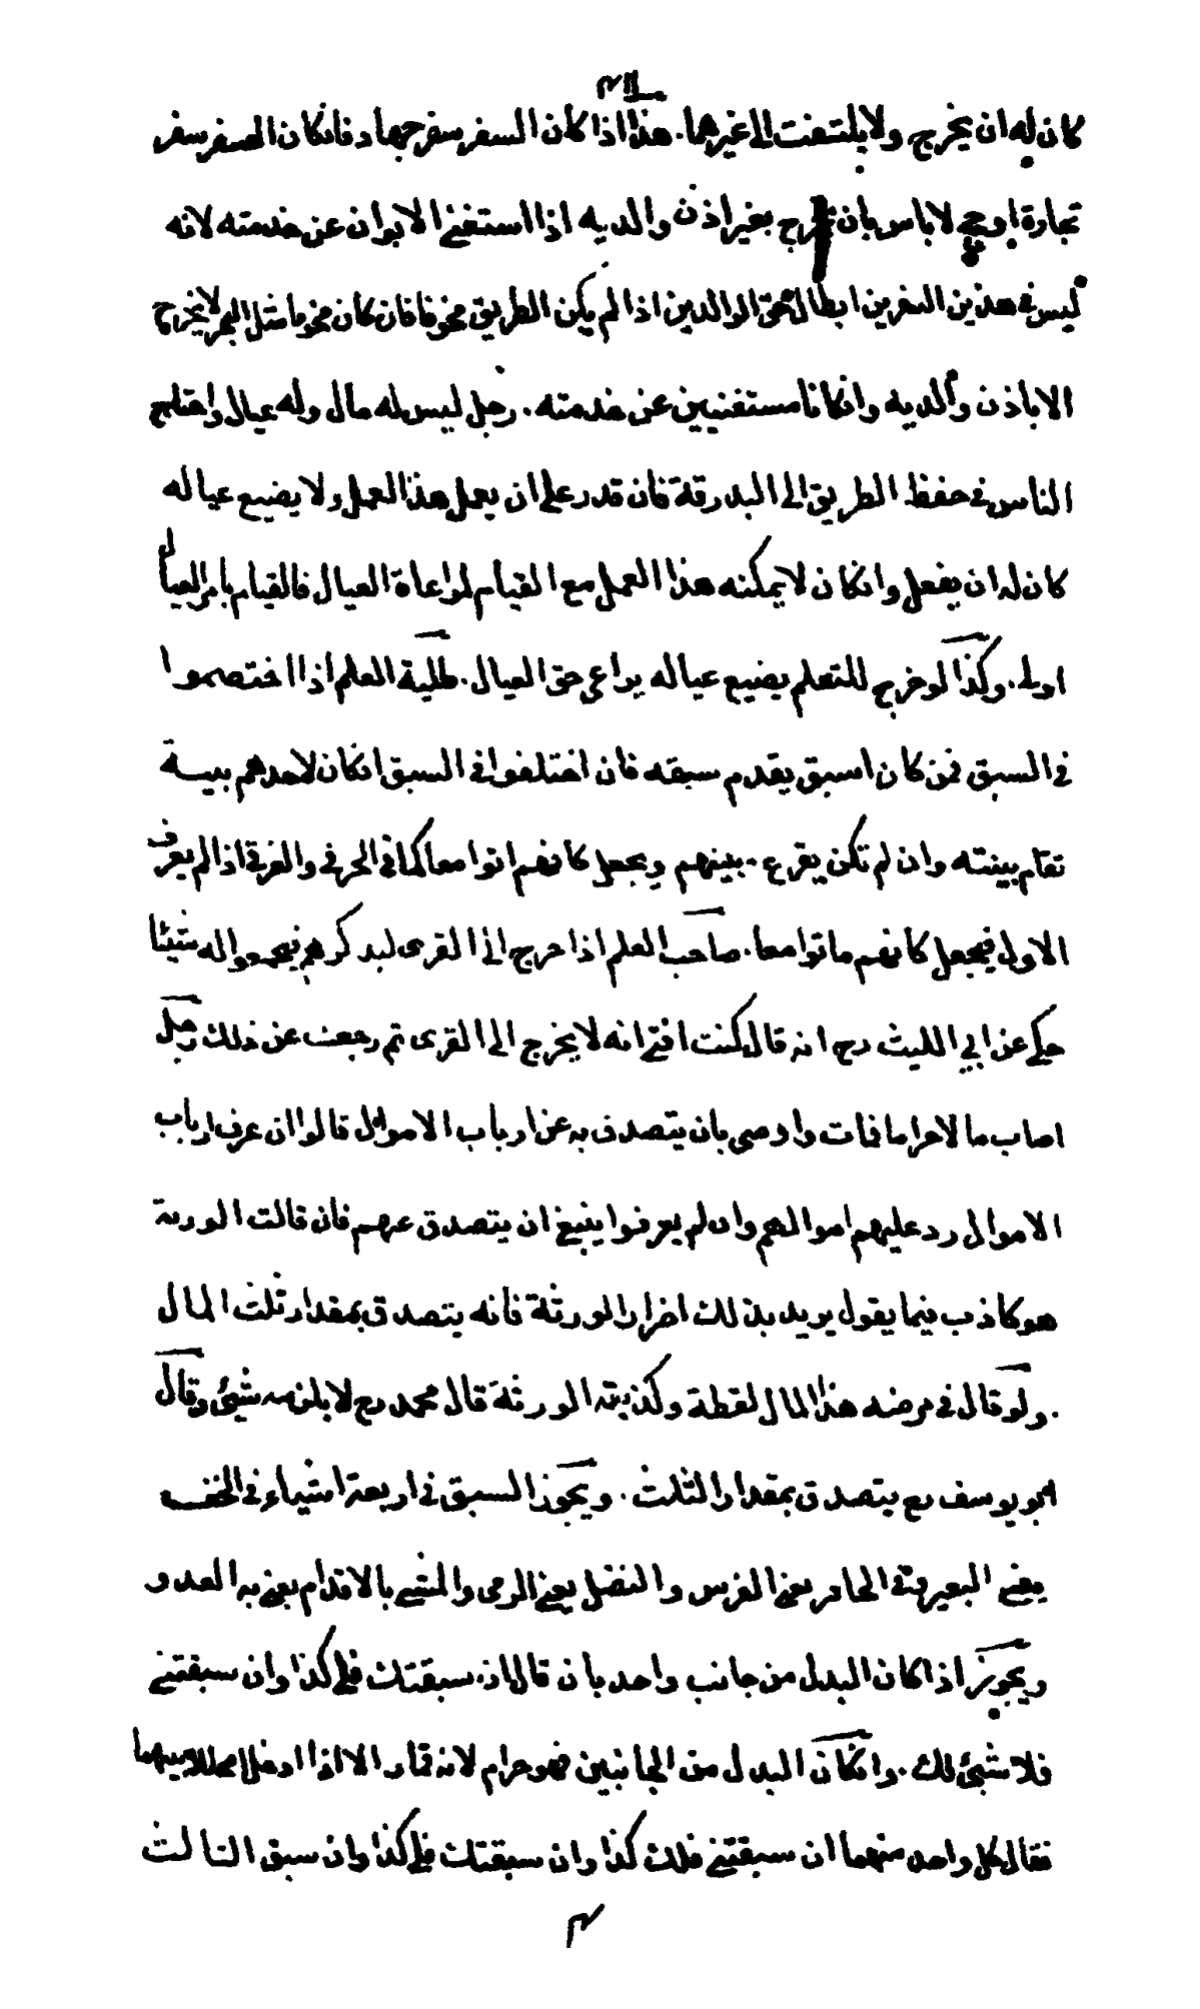 كان له ان يخرج ولا يلتفت الى غيرهما. هذا اذا كان السفر سفر جهاد فانكان السفر سفر
تجارة او حج لا باس بان يخرج بغير اذن والديه اذا استغنى الابوان عن خدمته لانه
ليس في هذين السفرين ابطال حق الوالدين اذا لم يكن الطريق مخوفا فان كان مخوفا مثل البحر لا يخرج
الا باذن والديه وانكانا مستغنيين عن خدمته. رجل ليس له مال وله عيال واحتاج
الناس في حفظ الطريق الى البدرقة فان قدر على ان يعمل هذا العمل ولا يضيع عياله
كان له ان يفعل وانكان لا يمكنه هذا العمل مع القيام لمراعاة العيال فالقيام بامر العيال
اولى. وكذا لو خرج للتعلم يضيع عياله يراعي حق العيال. طلبة العلم اذا اختصموا
في السبق فمن كان اسبق يقدم سبقه فان اختلفوا في السبق انكان لاحدهم بينة
تقام بينته وان لم تكن يقرع. بينهم ويجعل كانهم اتوا معا كما في الحرقى والغرقى اذا لم يعرف
الاول فيجعل كانهم ماتوا معا. صاحب العلم اذا خرج الى القرى ليذكرهم فيجمعوا له شيئا
حكي عن ابي الليث رح انه قال كنت افتي انه لا يخرج الى القرى ثم رجعت عن ذلك رجل
اصاب مالا حراما فمات واوصى بان يتصدق به عن ارباب الاموال قالوا ان عرف ارباب
الاموال رد عليهم اموالهم وان لم يعرفوا ينبغي ان يتصدق عنهم فان قالت الورثة
هو كاذب فيما يقول يريد بذلك اضرار الورثة فانه يتصدق بمقدار ثلث المال
. ولو قال في مرضه هذا المال لقطة وكذبته الورثة قال محمد رح لا يلزمه شيئ وقال
ابو يوسف رح يتصدق بمقدار الثلث. ويجوز السبق في اربعة اشياء في الخف
يعني البعير وفي الحافر يعني الفرس والنضل يعني الرمي والمشي بالاقدام يعني به العدو
ويجوز اذا كان البدل من جانب واحد بان قال ان. سبقتك فلي كذا وان سبقتني
فلا شيئ لك. وانكان البدل من الجانبين فهو حرام لانه قمار الا اذا ادخلا محللا بينهما
فقال كل واحد منهما ان سبقتني فلك كذا وان سبقتك فلي كذا وان سبق الثالث